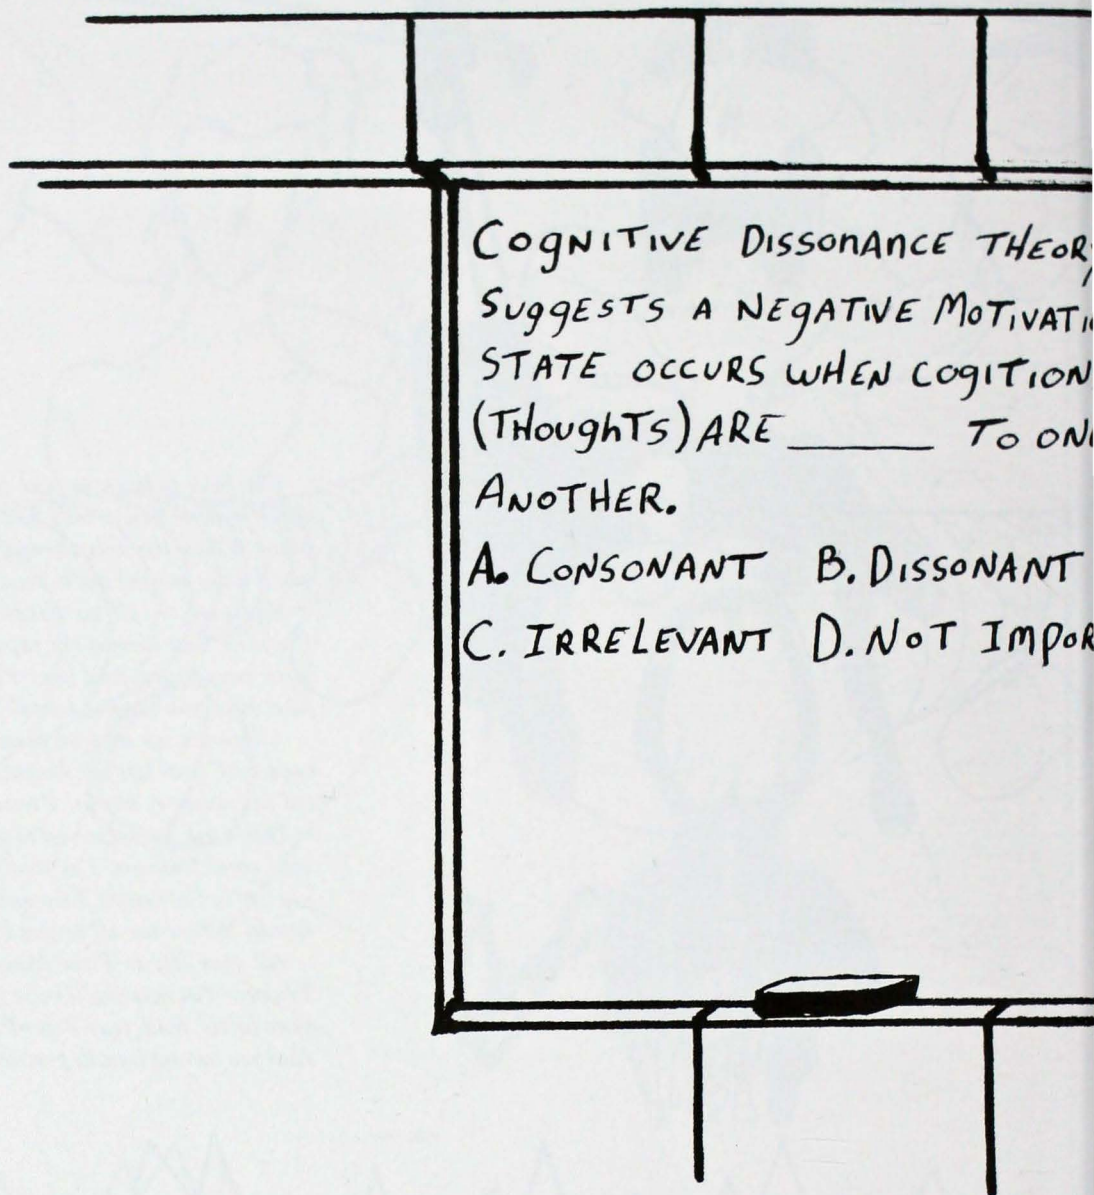 COGNITIVE DISSONANCE THEORY
SUGGESTS A NEGATIVE MOTIVATI
STATE OCCURS WHEN COGITION
(THOUGHTS) ARE ______ TO ON
ANOTHER.
A. CONSONANT B. DISSONANT
C. IRRELEVANT D. NOT IMPOR